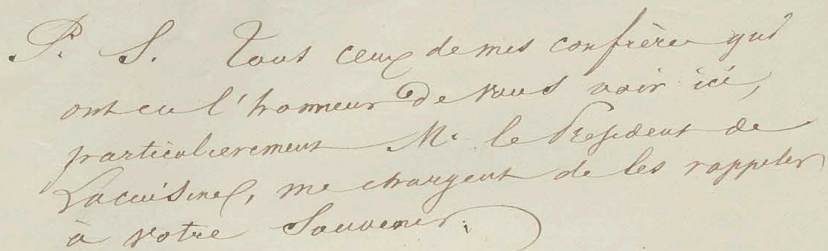 P. S. Tous ceux de mes confrères qui
ont eu l'honneur de vous voir ici,
particulièrement Mr. le Président de
Lacuisine, me chargent de les rappeler
à votre Souvenir.